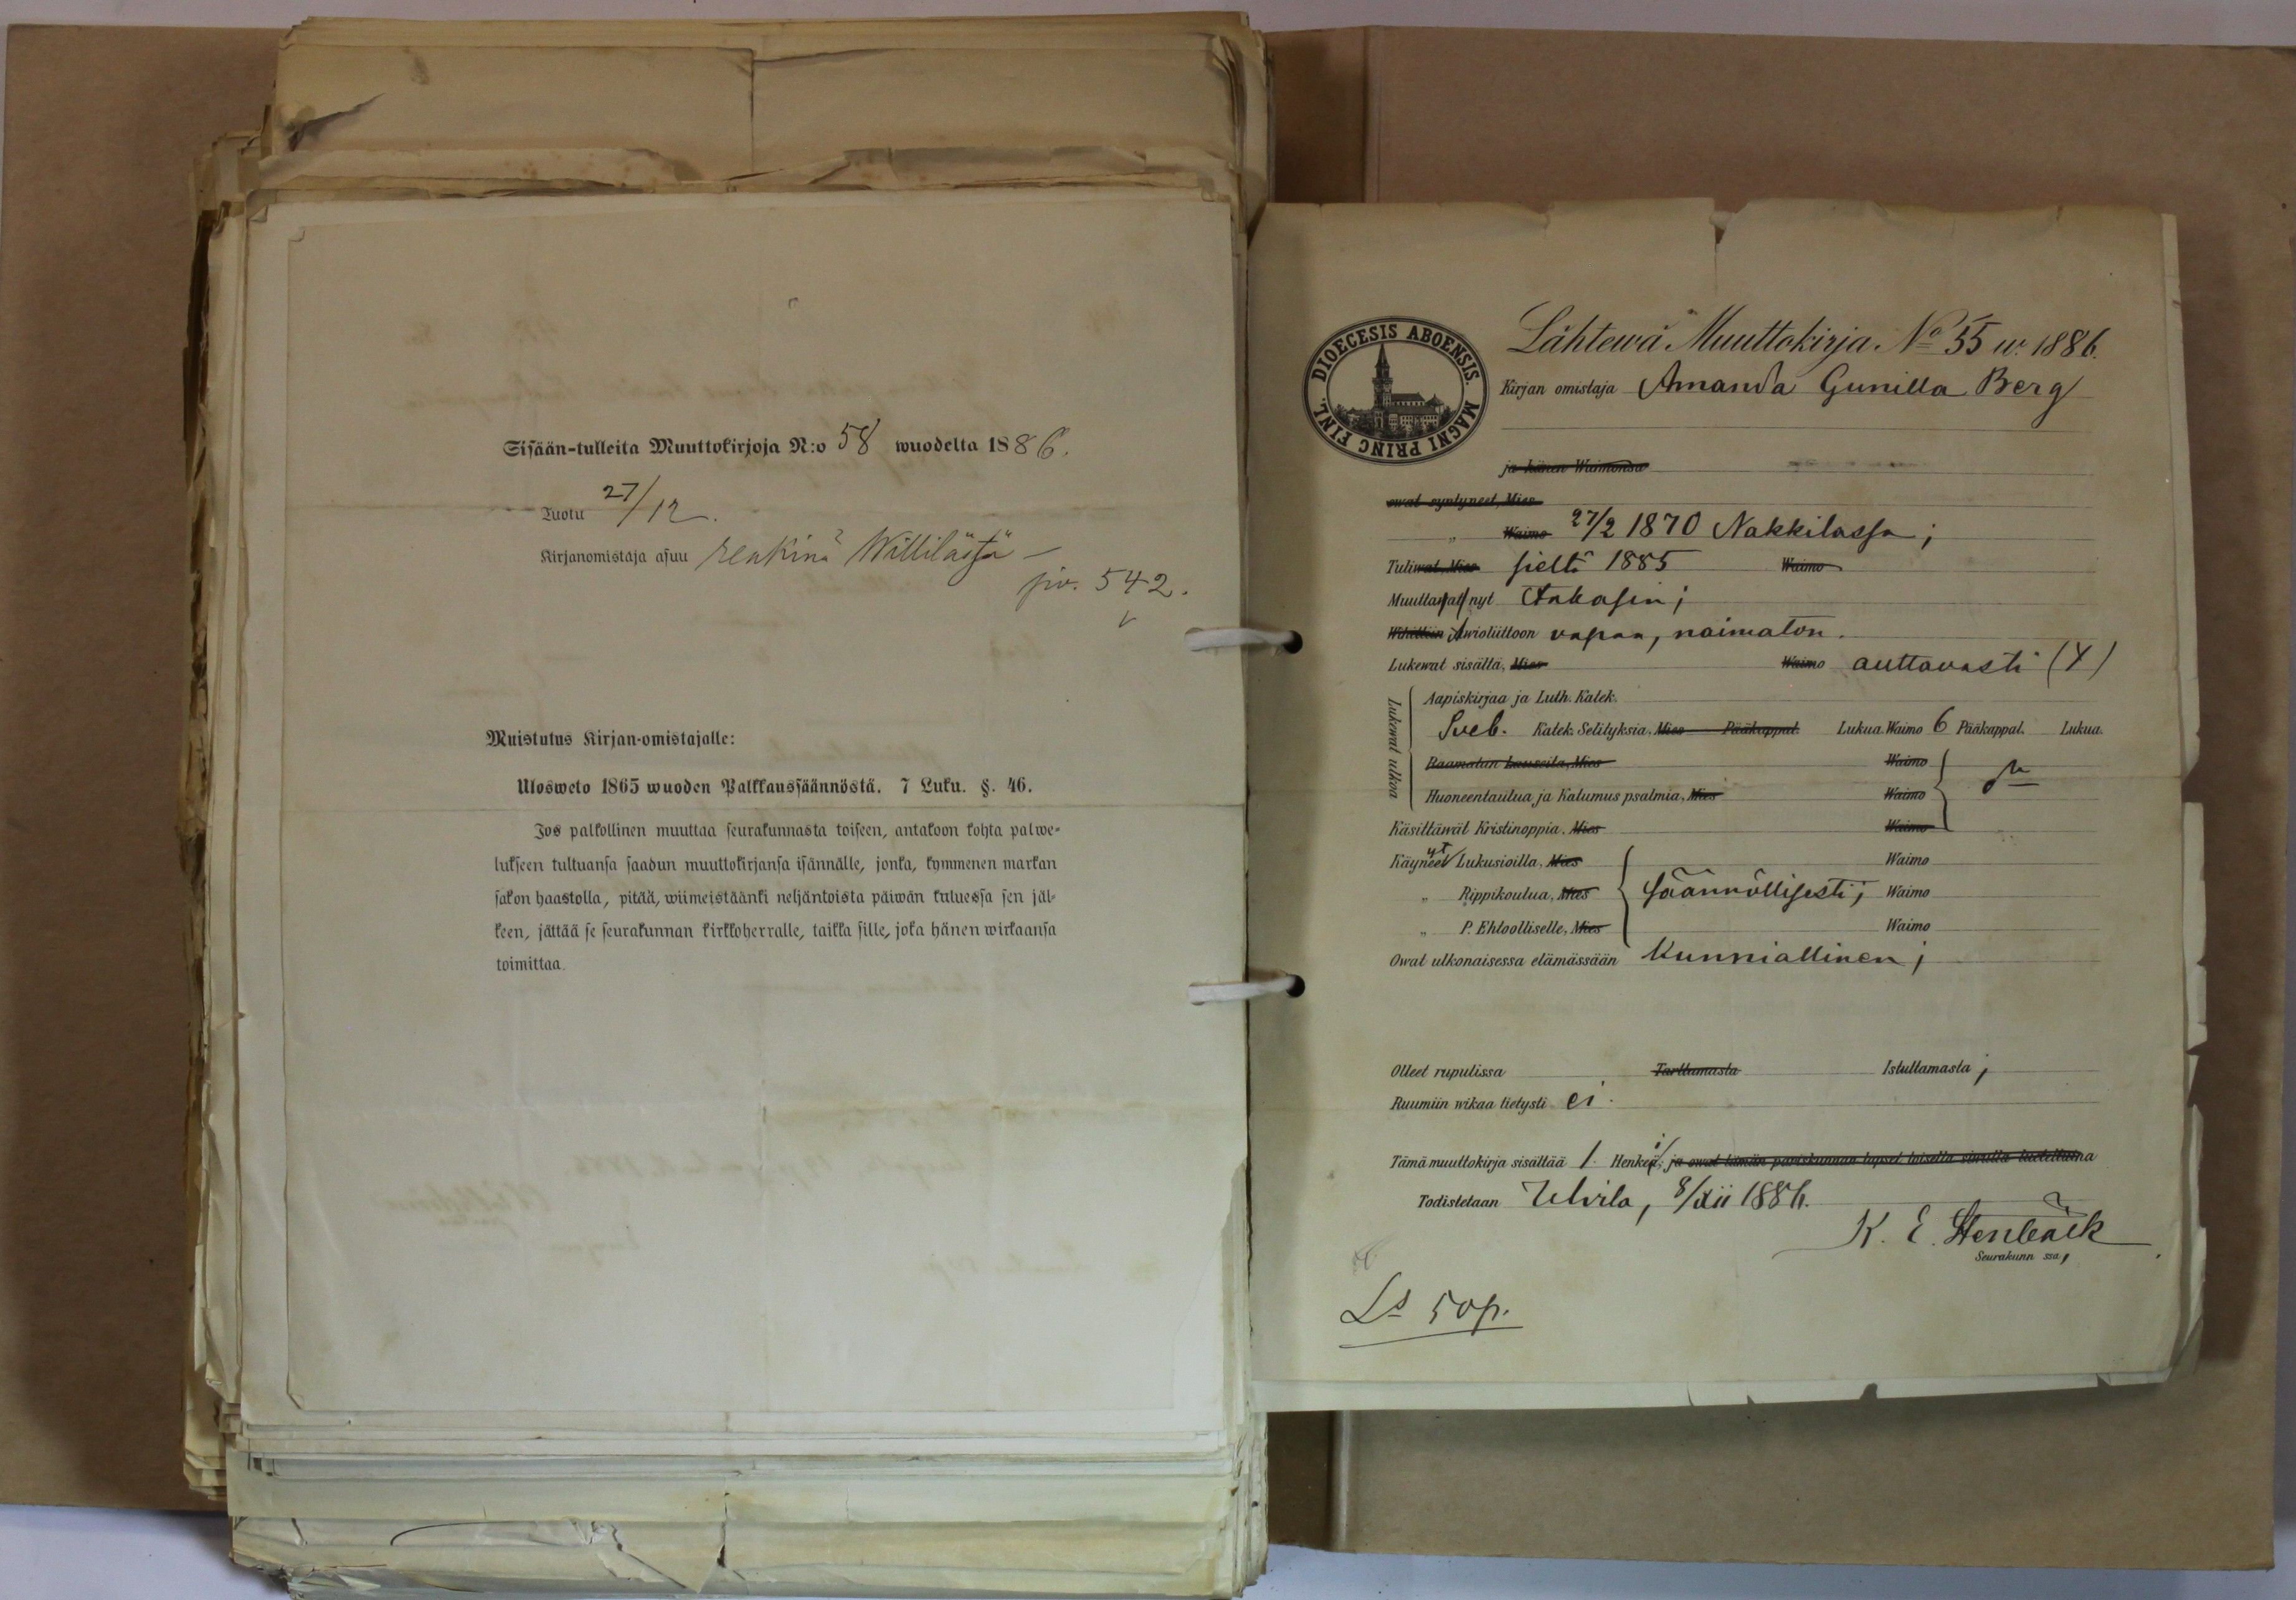 Sisään-tulleita Muuttokirjoja N:o 58 wuodelta 1886.
Tuotu 27/12.
Kirjanomistaja asuu renkinä Willilässä –
siv. 542.
Muistutus Kirjan-omistajalle:
Ulosweto 1865 wuoden Palkkaussäännöstä. 7 Luku. §. 46.
Jos palkollinen muuttaa seurakunnasta toiseen, antakoon kohta palwe-
lukseen tultuansa saadun muuttokirjansa isännälle, jonka, kymmenen markan
sakon haastolla, pitää, wiimeistäänki neljäntoista päiwän kuluessa sen jäl-
keen, jättää se seurakunnan kirkkoherralle, taikka sille, joka hänen wirkaansa
toimittaa.
DIOECESIS ABOENSIS. MAGNI PRINC FINL.
Lähtewä Muuttokirja No 55 w. 1886.
Kirjan omistaja Amanda Gunilla Berg
ja hänen Waimonsa
owat syntyneet, Mies
" Waimo 27/2 1870 Nakkilassa;
Tuliwat, Mies sieltä 1885 Waimo
Muuttawat nyt
Wihittiin Awioliittoon vapaa, naimaton.
Lukewat sisältä, Mies Waimo auttavasti (Y)
Lukewat ulkoa
Aapiskirjaa ja Luth. Katek.
Sveb. Katek. Selityksia. Mies Pääkappal. Lukua. Waimo 6 Pääkappal. Lukua.
Raamatun Lauseita, Mies Waimo
Huoneentaulua ja Katumus psalmia, Mies Waimo
Käsittäwät Kristinoppia. Mies Waimo
Käyneet yt Lukusioilla, Mies Waimo
" Rippikoulua, Mies säännöllisesti; Waimo
" P. Ehtoolliselle, Mies Waimo
Owat ulkonaisessa elämässään Kunniallinen;
Olleet rupulissa Tarttumasta Istuttamasta;
Ruumiin wikaa tietysti ei.
Tämä muuttokirja sisältää 1. Henkeä, i ja owat tämän pariskunnan lapset toisella sivulla lueteltuina
Todistetaan Ulvila, 8/xii 1886.
K. E. Stenbäck
Seurakunn ssa,
Ls 50 p.